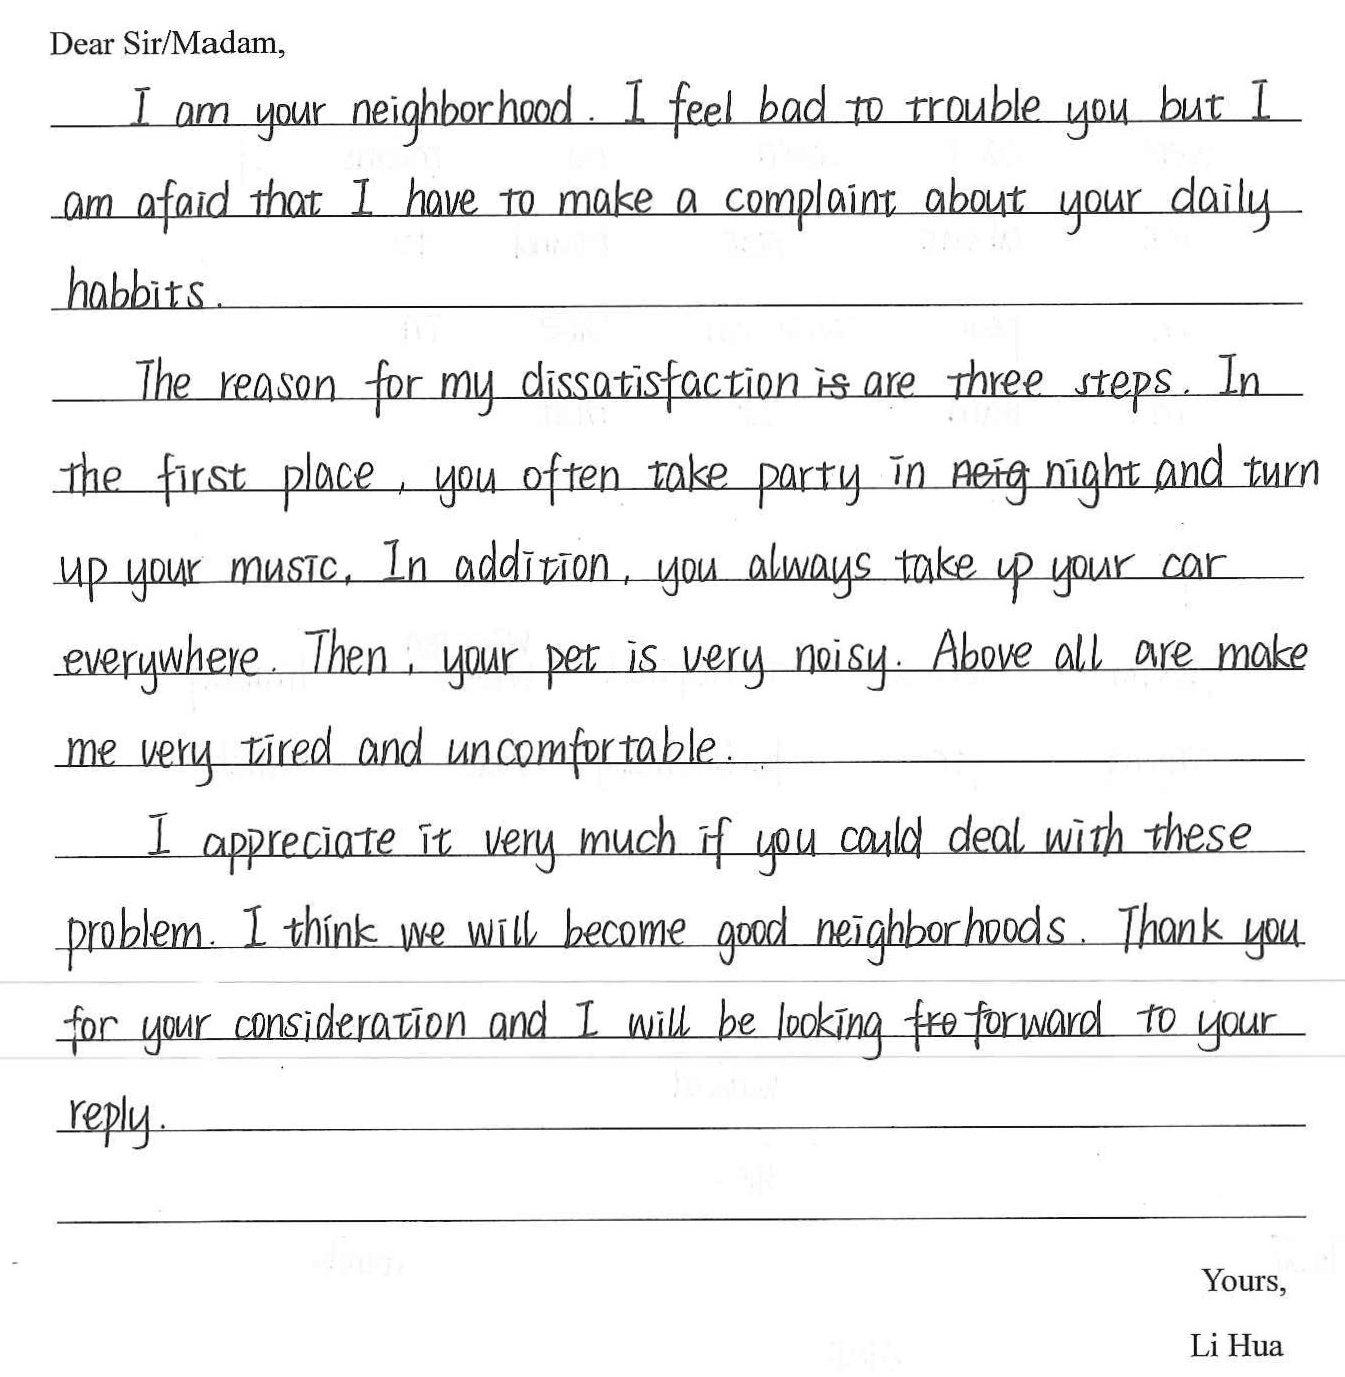 Dear Sir/Madam,
I am your neighborhood. I feel bad to trouble you but I
am afaid that I have to make a complaint about your daily
habbits.
The reason for my dissatisfaction is are three steps. In
the first place, you often take party in neig night and turn
up your music. In addition, you always take up your car
everywhere. Then, your pet is very noisy. Above all are make
me very tired and uncomfortable.
I appreciate it very much if you could deal with these
problem. I think we will become good neighborhoods. Thank you
for your consideration and I will be looking fro forward to your
reply.
Yours,
Li Hua